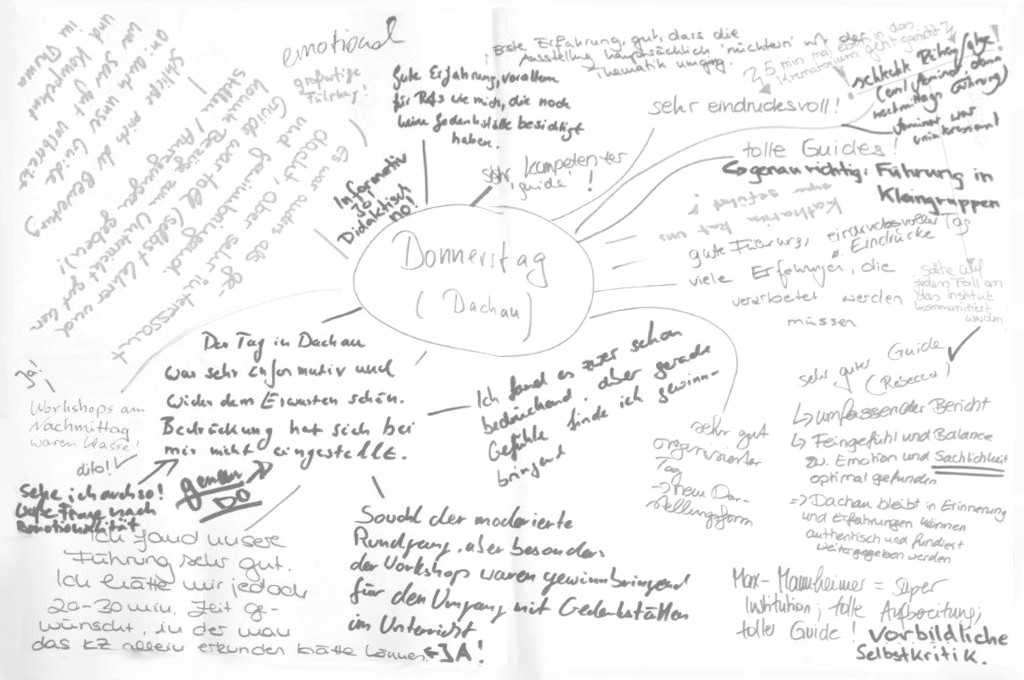 emotional
großartige
Führung!
Gute Erfahrung, vor allem
für RAs wie mich, die noch
keine Gedenkstätte besichtigt
haben.
Erste Erfahrung, gut, dass die
Ausstellung hauptsächlich "nüchtern" mit der
Thematik umging.
sehr eindrucksvoll!
schlechte
(am Seminar, dann
nachmittags Führung)
Seminar war
uninteressant
tolle Guides!
Genau richtig: Führung in
Kleingruppen
Katharina hat uns
super geführt!
sehr kompetenter
guide!
Informativ
Didaktisch
no!
Donnerstag
(Dachau)
gute Führung, eindrucksvoller Tag
viele Erfahrungen, Eindrücke, die
verarbeitet werden
müssen
sollte auf
jeden Fall an
das Institut
kommuniziert
werden
Schließe mich der Bewertung
an, auch unser Guide
war sehr gut vorbereitet
und kompetent
im Thema
Es war anders als ge-
dacht, aber sehr interessant
und gewinnbringend.
Guide war toll (selbst Lehrer und
konnte Bezüge zum Unterricht gut her-
stellen / Anregungen geben)!
Ja!
Workshops am
Nachmittag
waren klasse!
dito!
Sehe ich auch so!
nach
Emotionalität
Der Tag in Dachau
war sehr informativ und
wider dem Erwarten schön.
Bedrückung hat sich bei
mir nicht eingestellt.
genau
DO
Ich fand es zwar schon
bedrückend, aber gerade
Gefühle finde ich gewinn-
bringend
sehr gut
organisierter
Tag
→ neue Dar-
stellungsform
sehr guter Guide
(Rebecca)
↳ umfassender Bericht
↳ Feingefühl und Balance
zw. Emotion und Sachlichkeit
optimal gefunden
⇒ Dachau bleibt in Erinnerung
und Erfahrungen können
authentisch und fundiert
weitergegeben werden
Ich fand unsere
Führung sehr gut.
Ich hätte mir jedoch
20-30 min. Zeit ge-
wünscht, in der man
das KZ allein erkunden hätte können.
← JA!
Sowohl der moderierte
Rundgang, aber besonders
der Workshop waren gewinnbringend
für den Umgang mit Gedenkstätten
im Unterricht
Max-Mannheimer = super
Institution; tolle Aufbereitung;
toller Guide! vorbildliche
Selbstkritik.